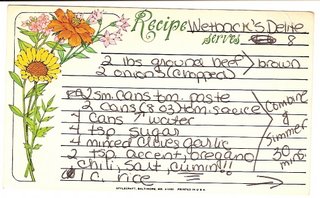 Recipe Wetback's Delite
serves 8
2 lbs ground beef > brown
2 onions (chopped)
2 sm. cans tom. paste
2 cans (8 oz) tom. sauce
4 cans ↑ water
4 tsp sugar
4 minced cloves garlic
2 tsp. accent, oregano
chili, salt, cumin!!
1 c. rice
Combine & simmer 30 mins.
STYLECRAFT, BALTIMORE, MD. PRINTED IN U.S.A.